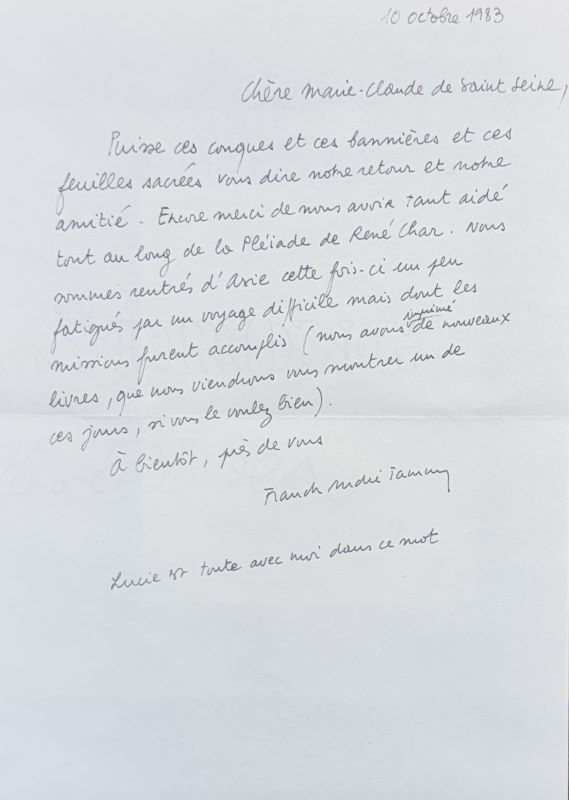 10 octobre 1983
Chère Marie-Claude de Saint Seine,
Puisse ces conques et ces bannières et ces
feuilles sacrées vous dire notre retour et notre
amitié. Encore merci de nous avoir tant aidé
tout au long de la Pléiade de René Char. Nous
sommes rentrés d'Asie cette fois-ci un peu
fatigués par un voyage difficile mais dont les
missions furent accomplis (nous avons imprimé de nouveaux
livres, que nous viendrons vous montrer un de
ces jours, si vous le voulez bien).
À bientôt, près de vous
Franck André Jamme
Lucie est toute avec moi dans ce mot